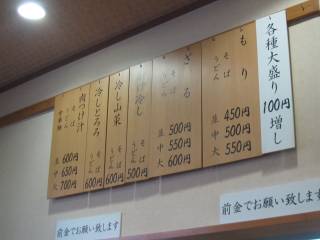 各種大盛り100円増し
もり
そば
うどん
450円
中 500円
大 550円
ざる
そば
うどん
並 500円
中 550円
大 600円
冷し
そば
うどん
500円
冷し山菜
そば
うどん
600円
冷しとろろ
そば
うどん
600円
肉つけ汁
そば
うどん
並 600円
中 650円
大 700円
前金でお願い致します
前金でお願い致します